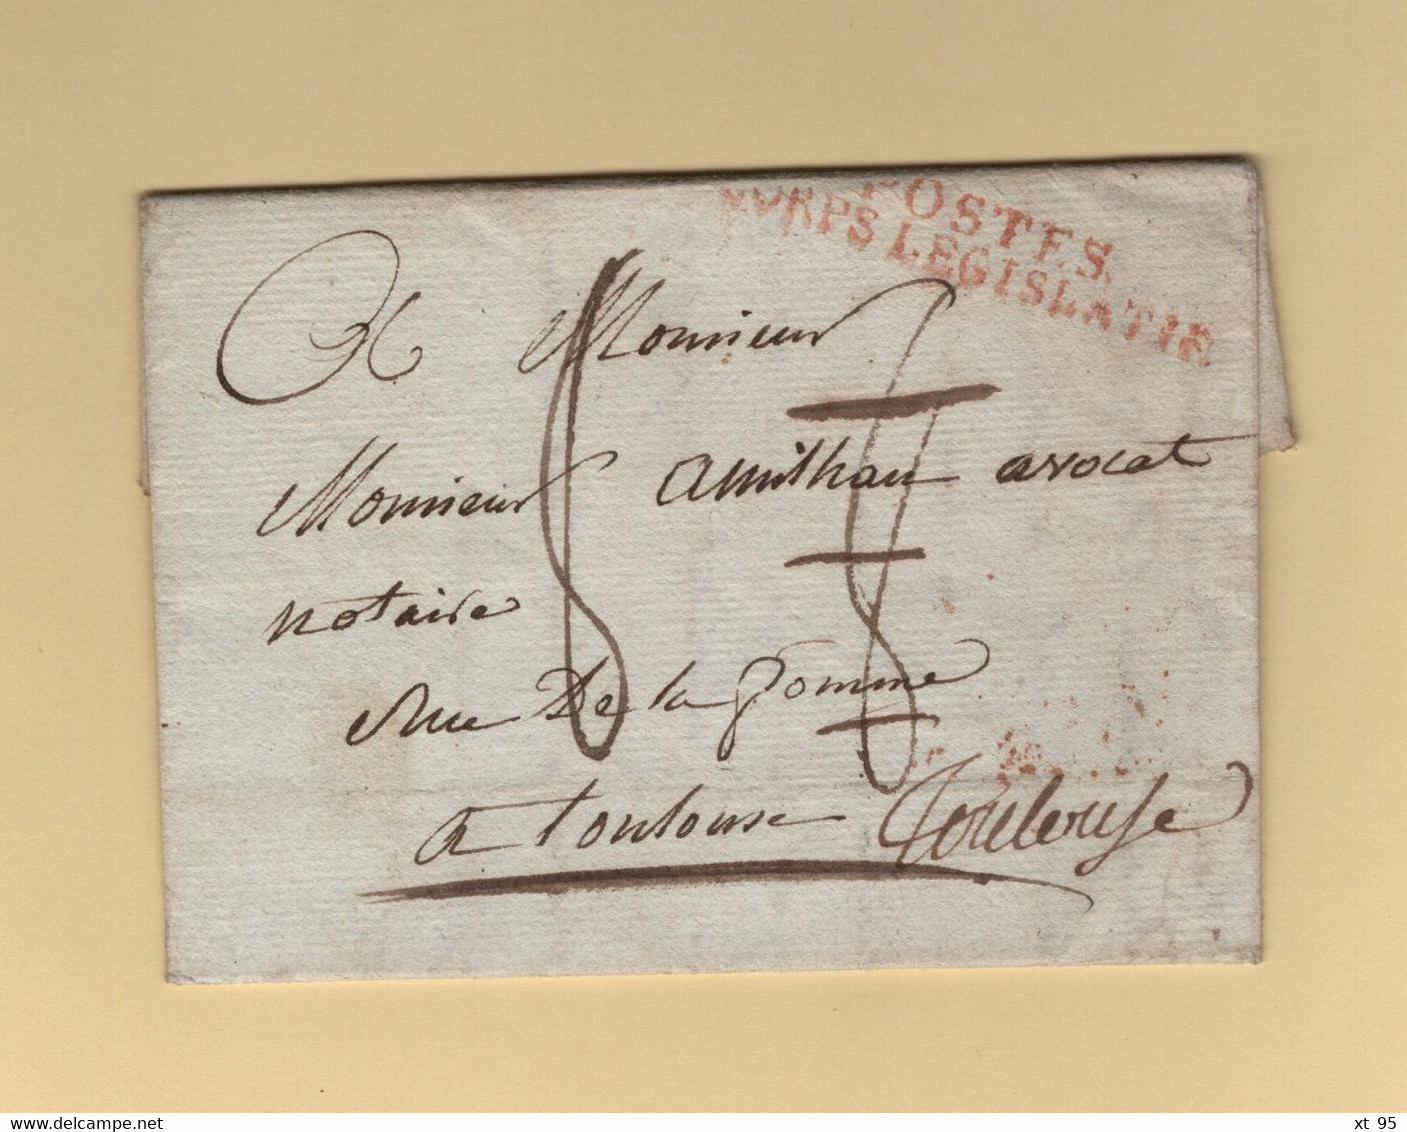 POSTES
CORPS LEGISLATIF
A Monsieur
Monsieur amilhau avocat
notaire
Rue De la pomme
a toulouse Toulouse
xt 95